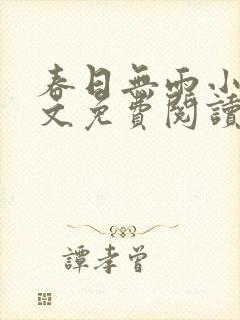 春日無雨小
文免費閱讀
譚孝曾